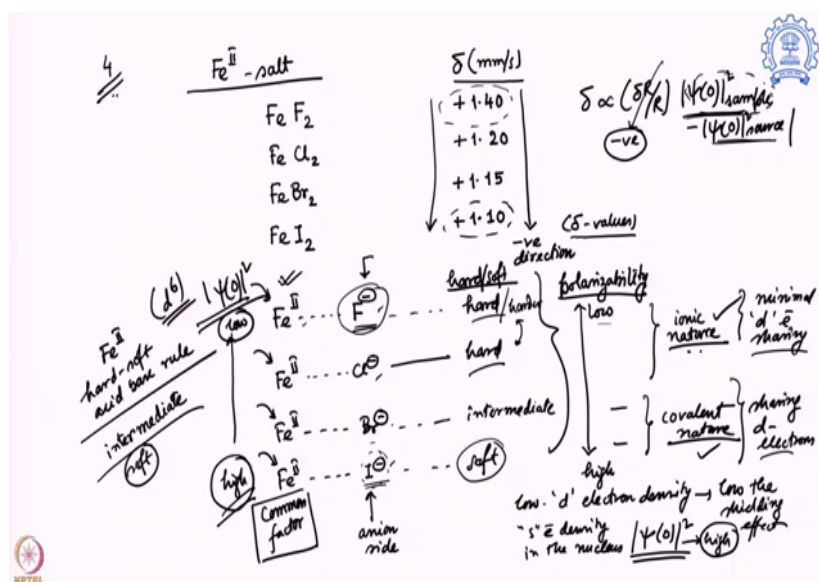 4
Fe^II - salt
δ (mm/s)
FeF₂
+1.40
FeCl₂
+1.20
FeBr₂
+1.15
FeI₂
+1.10
δ ∝ (δR/R) |ψ(0)|²sample
- |ψ(0)|²source|
-ve
-ve
direction
(δ-values)
Fe^II (d⁶)
hard-soft
acid base rule
intermediate
soft
|ψ(0)|²
low
high
Fe^II ...... F^⊖ ......
Fe^II ..... Cl^⊖
Fe^II .... Br^⊖ ....
Fe^II .... I^⊖ .....
Common
factor
anion
side
hard/soft
hard/harder
hard
intermediate
soft
polarizability
low
high
ionic
nature
minimal
'd' ē
sharing
covalent
nature
sharing
d-
electrons
low 'd' electron density → low the
shielding
effect
"s" ē density
in the nucleus |ψ(0)|² → high
NPTEL